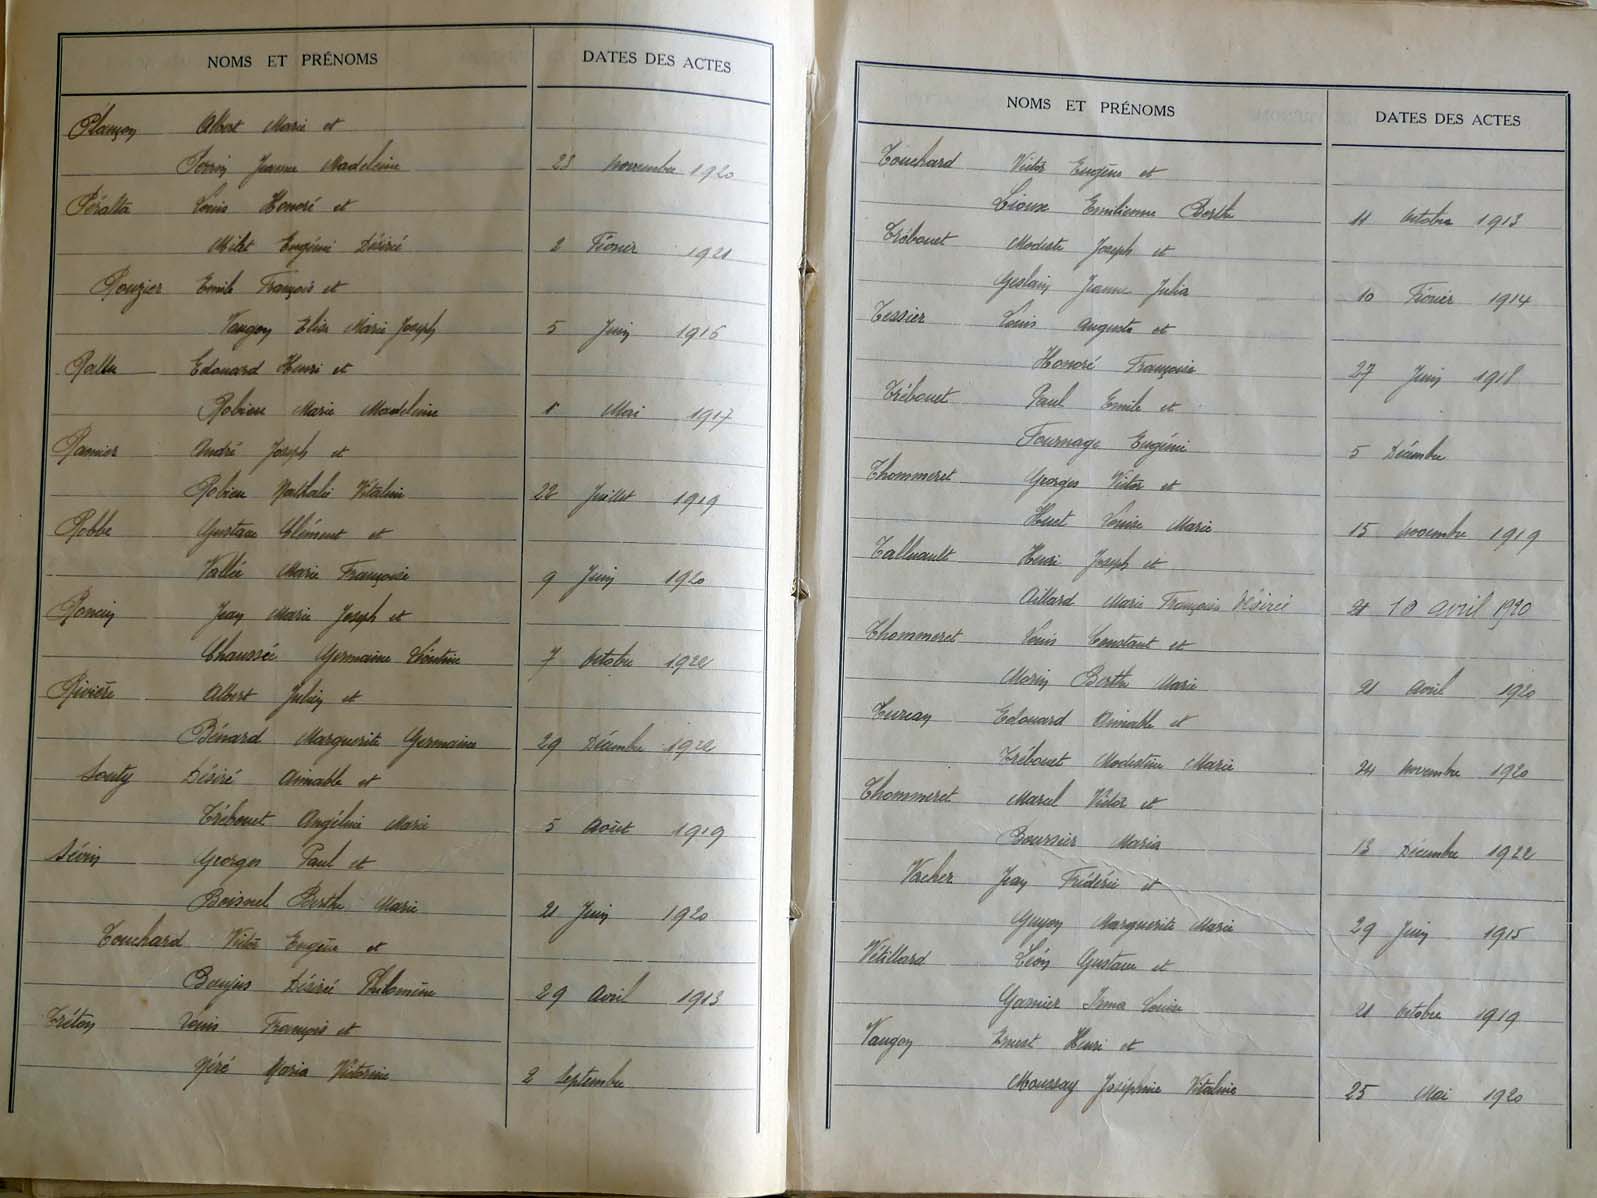 NOMS ET PRÉNOMS DATES DES ACTES
Plançon Albert Marie et
Perrin Jeanne Madeleine 23 Novembre 1920
Péralta Louis Honoré et
Milet Eugénie Désirée 2 Février 1921
Rouzier Emile François et
Vaugon Elise Marie Joseph 5 Juin 1916
Rallu Edouard Henri et
Robieu Marie Madeleine 1 Mai 1917
Ramier André Joseph et
Robieu Nathalie Vitaline 22 Juillet 1919
Robbe Gustave Clément et
Vallée Marie Françoise 9 Juin 1920
Roncin Jean Marie Joseph et
Chaussée Germaine Léontine 7 Octobre 1922
Rivière Albert Julien et
Bénard Marguerite Germaine 29 Décembre 1922
Souty Désiré Aimable et
Trébouet Angélina Marie 5 Août 1919
Sévin Georges Paul et
Boisnel Berthe Marie 21 Juin 1920
Touchard Victor Eugène et
Baujus Désirée Philomène 29 Avril 1913
Tréton Louis François et
Néré Maria Victorine 2 Septembre
NOMS ET PRÉNOMS DATES DES ACTES
Touchard Victor Eugène et
Lioux Emilienne Berthe 11 Octobre 1913
Trébouet Modeste Joseph et
Geslain Jeanne Julia 10 Février 1914
Tessier Louis Auguste et
Honoré Françoise 27 Juin 1918
Trébouet Paul Emile et
Fournage Eugénie 5 Décembre
Thommeret Georges Victor et
Huet Louise Marie 15 Novembre 1919
Talluault Henri Joseph et
Aillard Marie François Désirée 21 10 avril 1920
Thommeret Louis Constant et
Marin Berthe Marie 21 Avril 1920
Turcan Edouard Aimable et
Trébouet Modestine Marie 24 Novembre 1920
Thommeret Marcel Victor et
Boursier Maria 13 Décembre 1922
Vacher Jean Frédéric et
Guyon Marguerite Marie 29 Juin 1915
Vétillard Léon Gustave et
Garnier Irma Louise 21 Octobre 1919
Vaugon Ernest Henri et
Moussay Joséphine Vitaline 25 Mai 1920